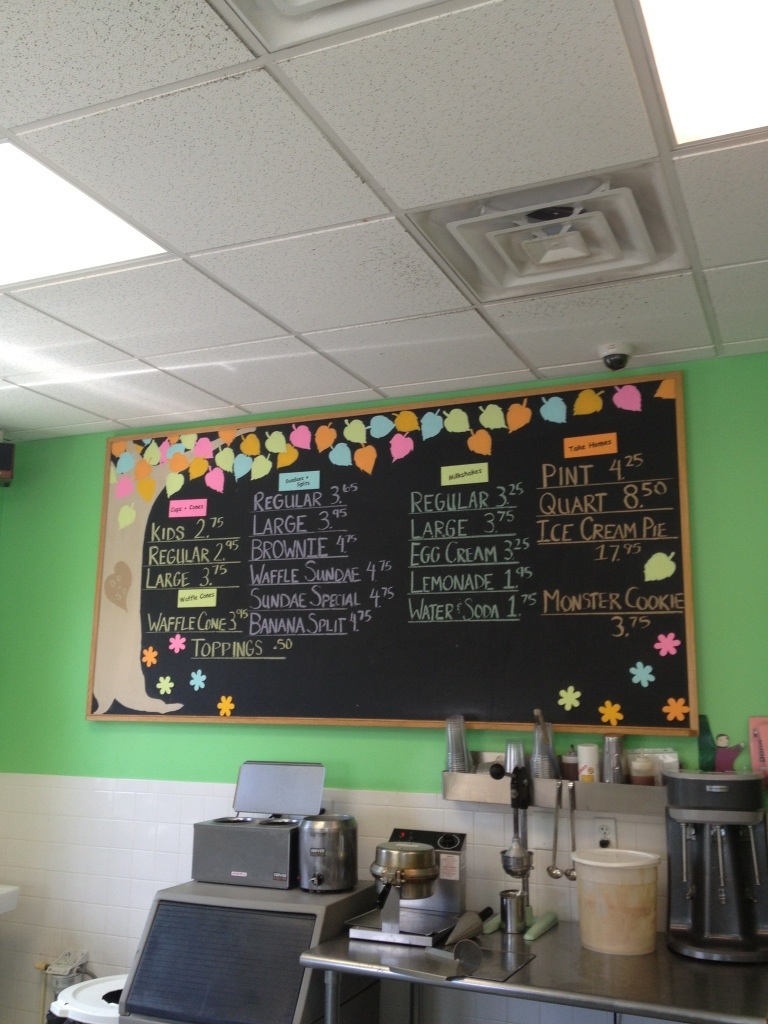 Cups + Cones
KIDS 2.75
REGULAR 2.95
LARGE 3.75
Waffle Cones
WAFFLE CONE 3.95
TOPPINGS .50
Sundaes +
Splits
REGULAR 3.65
LARGE 3.95
BROWNIE 4.75
WAFFLE SUNDAE 4.75
SUNDAE SPECIAL 4.75
BANANA SPLIT 4.75
Milkshakes
REGULAR 3.25
LARGE 3.75
EGG CREAM 3.25
LEMONADE 1.95
WATER & SODA 1.75
Take Homes
PINT 4.25
QUART 8.50
ICE CREAM PIE
17.95
MONSTER COOKIE
3.75